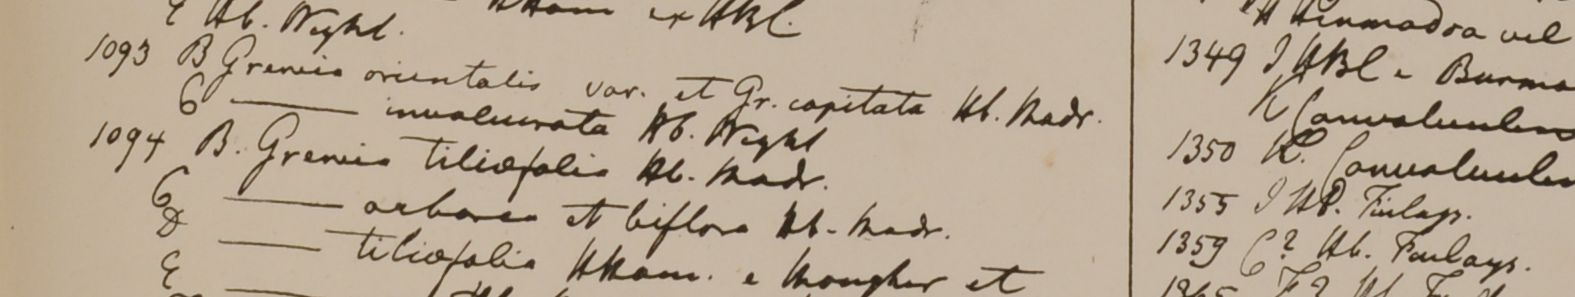 E Hb. Wight.
HHam ex HBC.
1093 B Grewia orientalis var. et Gr. capitata Hb. Madr.
C —— involucrata Hb. Wight
1094 B. Grewia tiliæfolia Hb. Madr.
C —— arborea et biflora Hb. Madr.
D —— tiliæfolia HHam. e Mongher et
E ——
vel
1349 I HBC e Burma
K Convolvulus
1350 K. Convolvulus
1355 I HB. Finlays.
1359 C? Hb. Finlays.
1365 F? Hb.